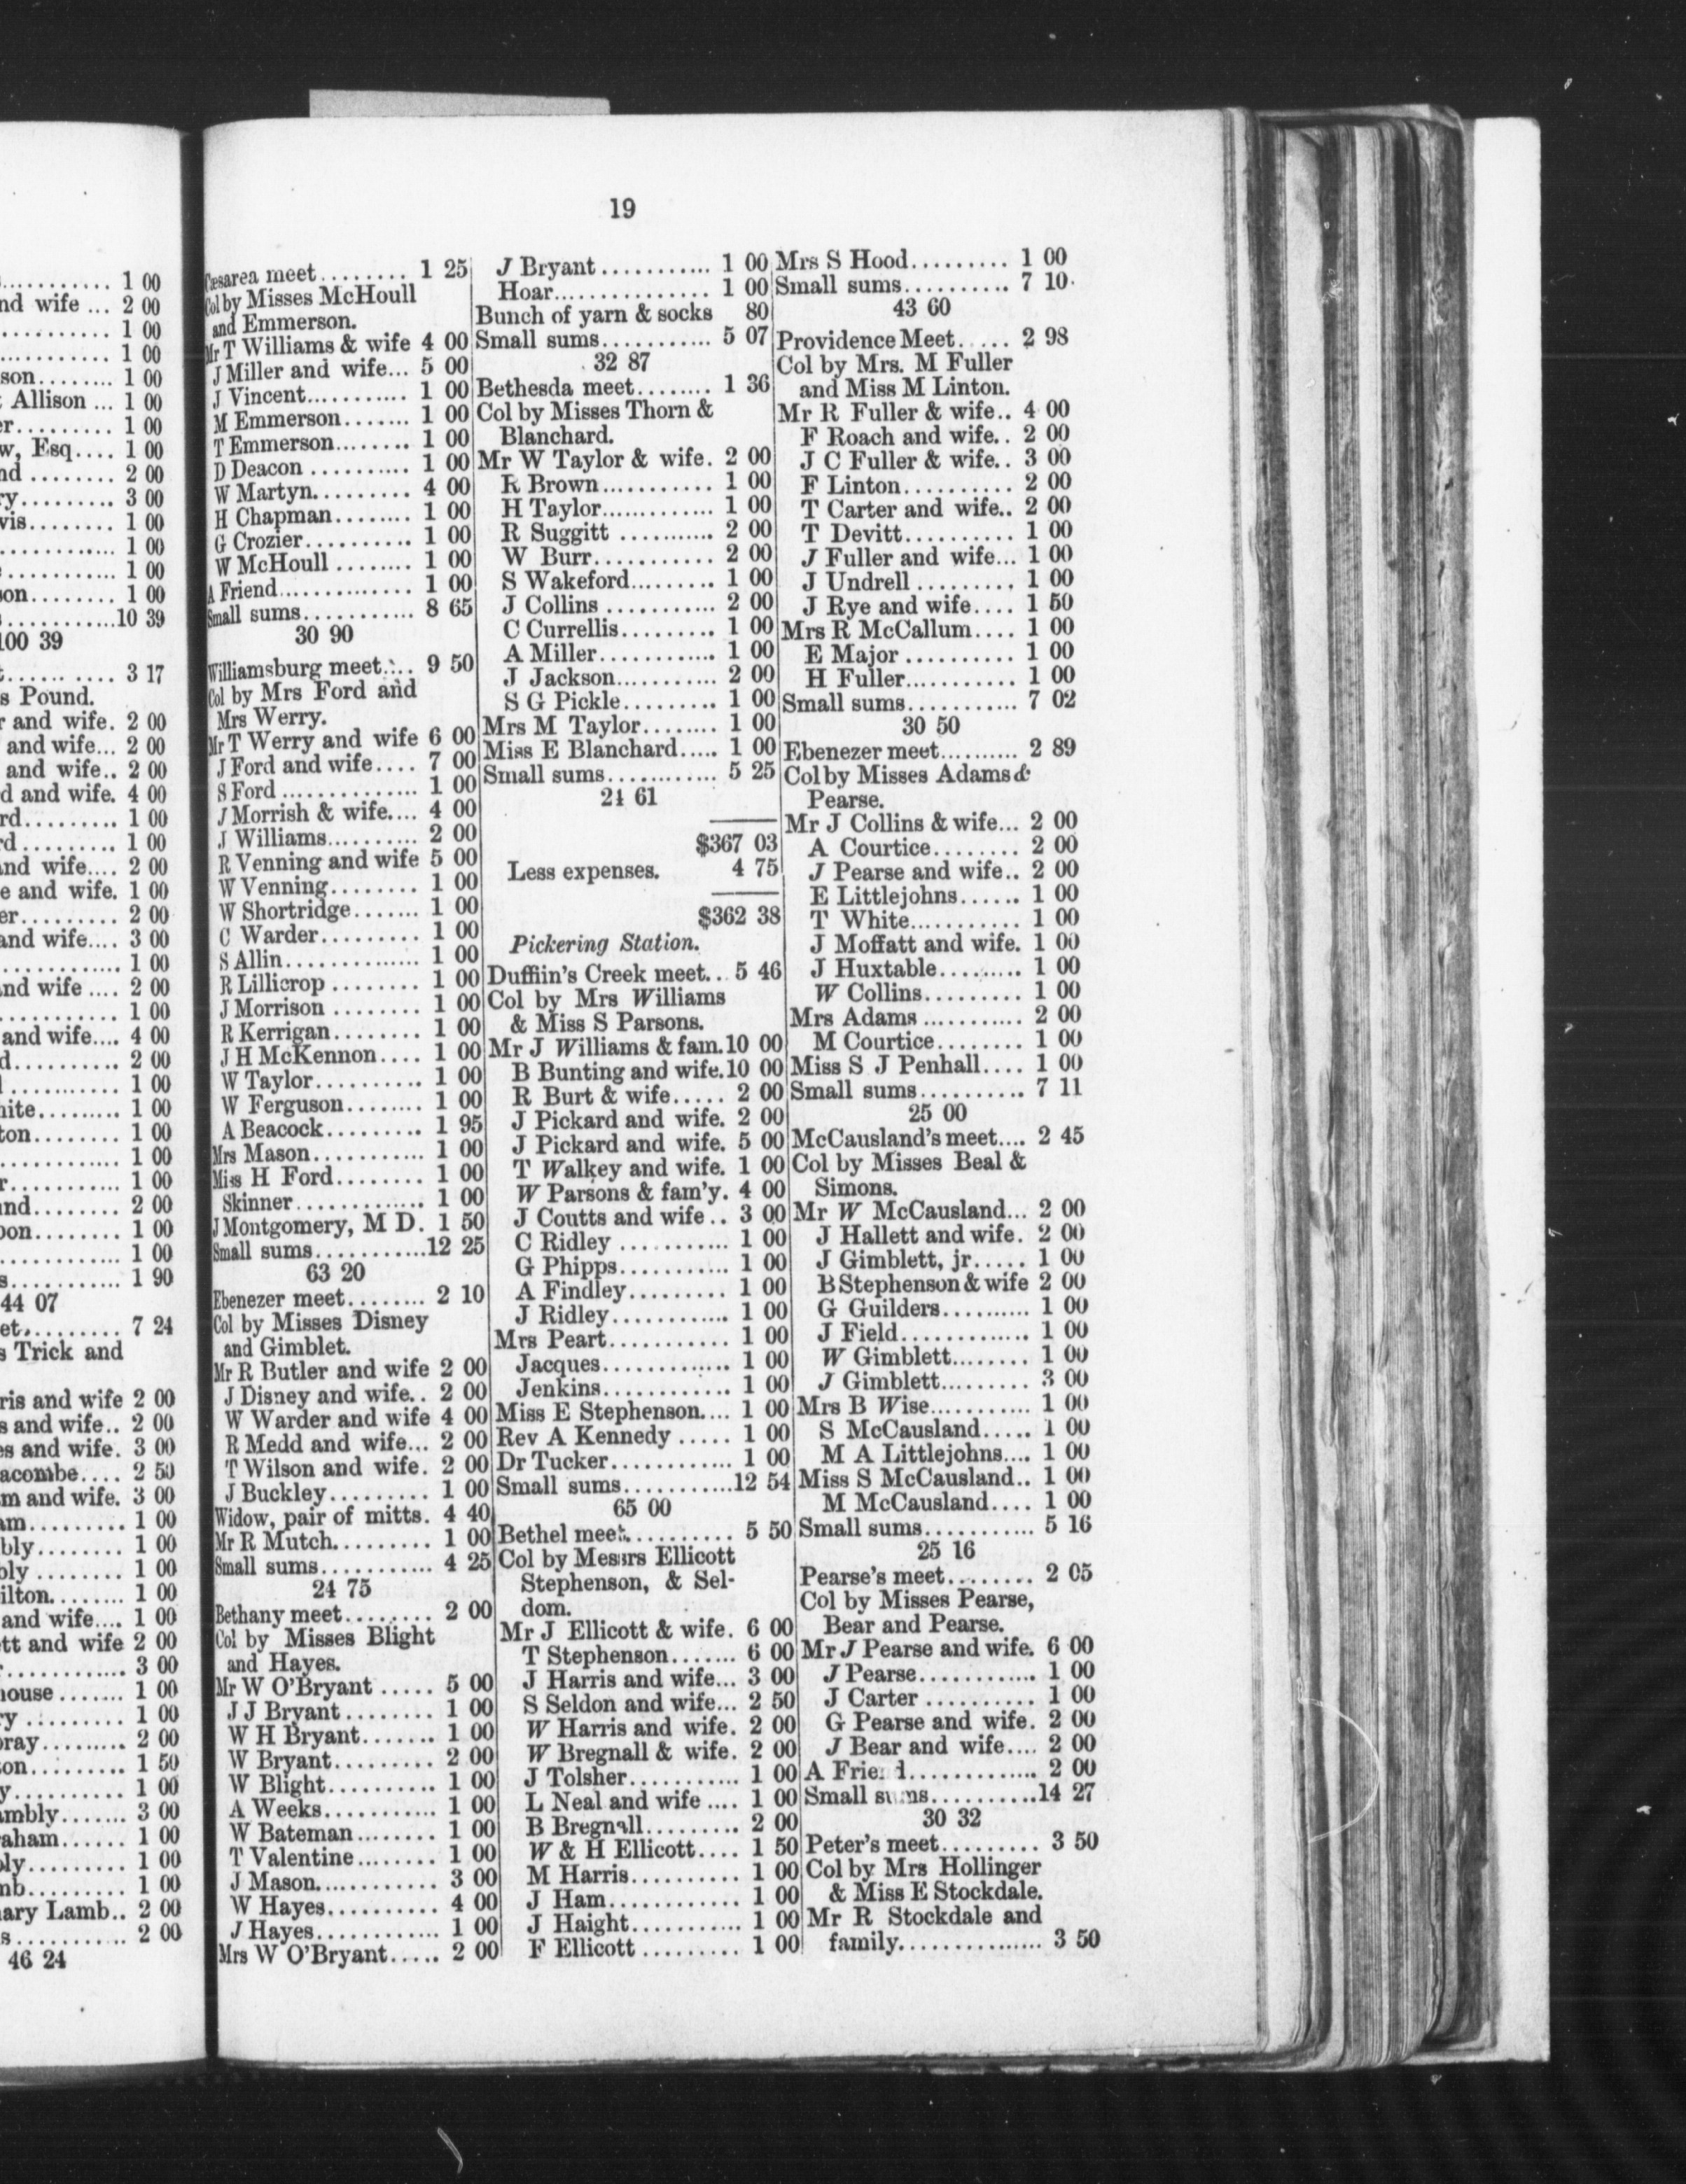 1 00
nd wife ... 2 00
1 00
1 00
son........ 1 00
Allison ... 1 00
r......... 1 00
w, Esq.... 1 00
nd ........ 2 00
ry......... 3 00
vis........ 1 00
1 00
1 00
on........ 1 00
10 39
100 39
3 17
s Pound.
r and wife. 2 00
and wife... 2 00
and wife.. 2 00
d and wife. 4 00
rd......... 1 00
rd......... 1 00
and wife.... 2 00
e and wife. 1 00
er......... 2 00
and wife.... 3 00
1 00
and wife .... 2 00
1 00
and wife.... 4 00
d.......... 2 00
1 00
hite......... 1 00
ton........ 1 00
1 00
r........... 1 00
and........ 2 00
oon........ 1 00
1 00
s........... 1 90
44 07
et......... 7 24
s Trick and
ris and wife 2 00
s and wife.. 2 00
es and wife. 3 00
acombe.... 2 50
m and wife. 3 00
am......... 1 00
bly........ 1 00
bly ........ 1 00
ilton........ 1 00
and wife.... 1 00
tt and wife 2 00
3 00
house ....... 1 00
ry ......... 1 00
oray......... 2 00
on......... 1 50
y.......... 1 00
ambly....... 3 00
aham...... 1 00
ly......... 1 00
mb......... 1 00
ary Lamb.. 2 00
s.......... 2 00
46 24
19
Cæsarea meet........ 1 25
Col by Misses McHoull
and Emmerson.
Mr T Williams & wife 4 00
J Miller and wife... 5 00
J Vincent........... 1 00
M Emmerson....... 1 00
T Emmerson........ 1 00
D Deacon .......... 1 00
W Martyn.......... 4 00
H Chapman........ 1 00
G Crozier........... 1 00
W McHoull ........ 1 00
A Friend............. 1 00
Small sums........... 8 65
30 90
Williamsburg meet.... 9 50
Col by Mrs Ford and
Mrs Werry.
Mr T Werry and wife 6 00
J Ford and wife.... 7 00
S Ford .............. 1 00
J Morrish & wife.... 4 00
J Williams......... 2 00
R Venning and wife 5 00
W Venning........ 1 00
W Shortridge....... 1 00
C Warder.......... 1 00
S Allin.............. 1 00
R Lillicrop ........ 1 00
J Morrison ......... 1 00
R Kerrigan......... 1 00
J H McKennon.... 1 00
W Taylor........... 1 00
W Ferguson........ 1 00
A Beacock.......... 1 95
Mrs Mason........... 1 00
Miss H Ford........ 1 00
Skinner............. 1 00
J Montgomery, M D. 1 50
Small sums...........12 25
63 20
Ebenezer meet........ 2 10
Col by Misses Disney
and Gimblet.
Mr R Butler and wife 2 00
J Disney and wife.. 2 00
W Warder and wife 4 00
R Medd and wife... 2 00
T Wilson and wife. 2 00
J Buckley.......... 1 00
Widow, pair of mitts. 4 40
Mr R Mutch.......... 1 00
Small sums........... 4 25
24 75
Bethany meet......... 2 00
Col by Misses Blight
and Hayes.
Mr W O'Bryant ..... 5 00
J J Bryant ......... 1 00
W H Bryant....... 1 00
W Bryant.......... 2 00
W Blight........... 1 00
A Weeks........... 1 00
W Bateman........ 1 00
T Valentine........ 1 00
J Mason............ 3 00
W Hayes........... 4 00
J Hayes............ 1 00
Mrs W O'Bryant..... 2 00
J Bryant........... 1 00
Hoar............... 1 00
Bunch of yarn & socks 80
Small sums........... 5 07
32 87
Bethesda meet........ 1 36
Col by Misses Thorn &
Blanchard.
Mr W Taylor & wife. 2 00
R Brown........... 1 00
H Taylor............. 1 00
R Suggitt ........... 2 00
W Burr............ 2 00
S Wakeford......... 1 00
J Collins ........... 2 00
C Currellis......... 1 00
A Miller............ 1 00
J Jackson........... 2 00
S G Pickle......... 1 00
Mrs M Taylor........ 1 00
Miss E Blanchard..... 1 00
Small sums............ 5 25
24 61
$367 03
Less expenses. 4 75
$362 38
Pickering Station.
Duffiin's Creek meet.. 5 46
Col by Mrs Williams
& Miss S Parsons.
Mr J Williams & fam.10 00
B Bunting and wife.10 00
R Burt & wife..... 2 00
J Pickard and wife. 2 00
J Pickard and wife. 5 00
T Walkey and wife. 1 00
W Parsons & fam'y. 4 00
J Coutts and wife .. 3 00
C Ridley ........... 1 00
G Phipps........... 1 00
A Findley.......... 1 00
J Ridley............ 1 00
Mrs Peart............ 1 00
Jacques............. 1 00
Jenkins............. 1 00
Miss E Stephenson.... 1 00
Rev A Kennedy ..... 1 00
Dr Tucker............ 1 00
Small sums...........12 54
65 00
Bethel meet.......... 5 50
Col by Messrs Ellicott
Stephenson, & Sel-
dom.
Mr J Ellicott & wife. 6 00
T Stephenson....... 6 00
J Harris and wife... 3 00
S Seldon and wife... 2 50
W Harris and wife. 2 00
W Bregnall & wife. 2 00
J Tolsher........... 1 00
L Neal and wife .... 1 00
B Bregnall......... 2 00
W & H Ellicott.... 1 50
M Harris........... 1 00
J Ham............. 1 00
J Haight........... 1 00
F Ellicott .......... 1 00
Mrs S Hood.......... 1 00
Small sums.......... 7 10
43 60
Providence Meet..... 2 98
Col by Mrs. M Fuller
and Miss M Linton.
Mr R Fuller & wife.. 4 00
F Roach and wife.. 2 00
J C Fuller & wife.. 3 00
F Linton........... 2 00
T Carter and wife.. 2 00
T Devitt........... 1 00
J Fuller and wife... 1 00
J Undrell .......... 1 00
J Rye and wife.... 1 50
Mrs R McCallum.... 1 00
E Major ........... 1 00
H Fuller............ 1 00
Small sums........... 7 02
30 50
Ebenezer meet.......... 2 89
Col by Misses Adams &
Pearse.
Mr J Collins & wife... 2 00
A Courtice......... 2 00
J Pearse and wife.. 2 00
E Littlejohns...... 1 00
T White........... 1 00
J Moffatt and wife. 1 00
J Huxtable......... 1 00
W Collins.......... 1 00
Mrs Adams ........... 2 00
M Courtice......... 1 00
Miss S J Penhall.... 1 00
Small sums.......... 7 11
25 00
McCausland's meet.... 2 45
Col by Misses Beal &
Simons.
Mr W McCausland... 2 00
J Hallett and wife. 2 00
J Gimblett, jr..... 1 00
B Stephenson & wife 2 00
G Guilders.......... 1 00
J Field............. 1 00
W Gimblett........ 1 00
J Gimblett......... 3 00
Mrs B Wise........... 1 00
S McCausland..... 1 00
M A Littlejohns.... 1 00
Miss S McCausland.. 1 00
M McCausland.... 1 00
Small sums........... 5 16
25 16
Pearse's meet........ 2 05
Col by Misses Pearse,
Bear and Pearse.
Mr J Pearse and wife. 6 00
J Pearse............ 1 00
J Carter ........... 1 00
G Pearse and wife. 2 00
J Bear and wife.... 2 00
A Friend............. 2 00
Small sums..........14 27
30 32
Peter's meet.......... 3 50
Col by Mrs Hollinger
& Miss E Stockdale.
Mr R Stockdale and
family............... 3 50